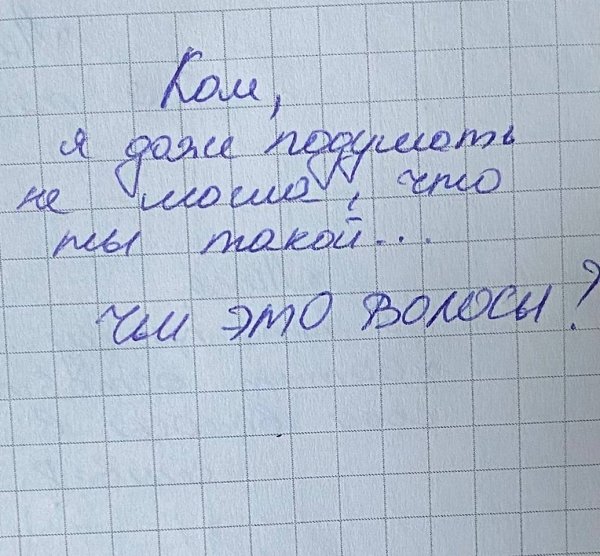 Ком,
я даже подумать
не могла, что
ты такой...
Чьи это волосы?